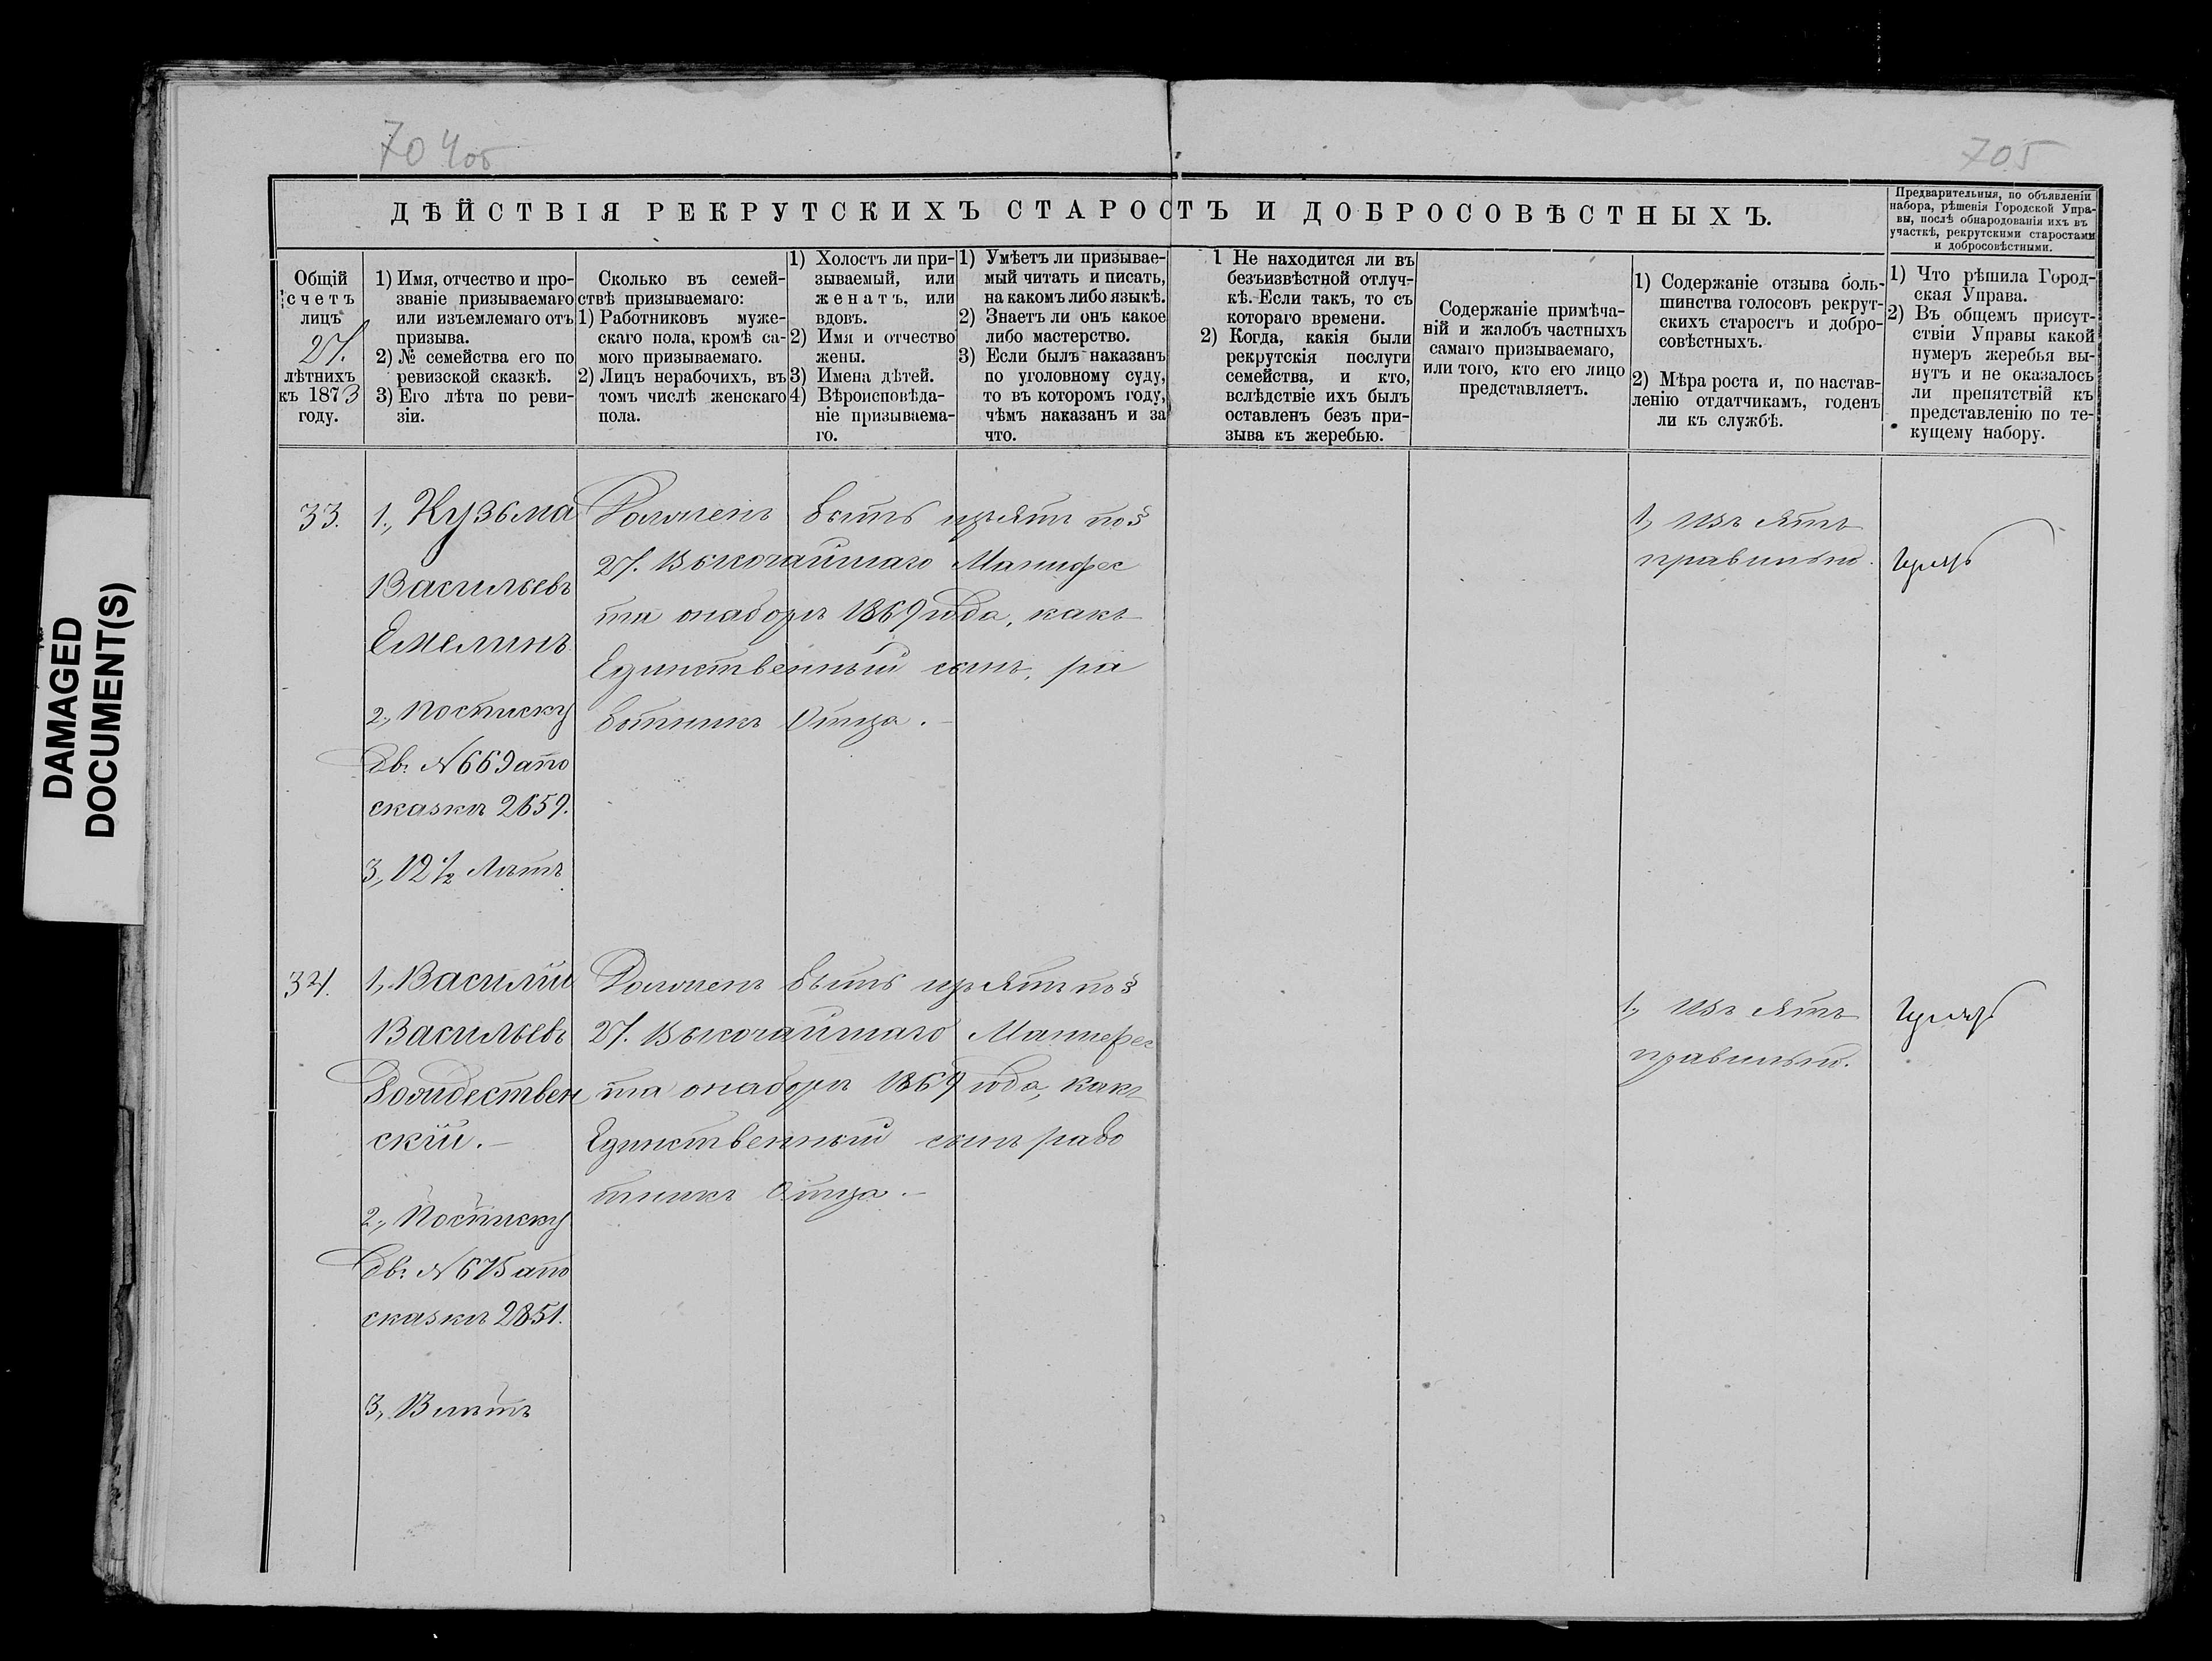 704об
705
DAMAGED
DOCUMENT(S)
ДѢЙСТВІЯ РЕКРУТСКИХЪ СТАРОСТЪ И ДОБРОСОВѢСТНЫХЪ.
Предварительныя, по объявленіи
набора, рѣшенія Городской Упра-
вы, послѣ обнародованія ихъ въ
участкѣ, рекрутскими старостами
и добросовѣстными.
Общій
счетъ
лицъ
27.
лѣтнихъ
къ 1873
году.
1) Имя, отчество и про-
званіе призываемаго
или изъемлемаго отъ
призыва.
2) № семейства его по
ревизской сказкѣ.
3) Его лѣта по реви-
зіи.
Сколько въ семей-
ствѣ призываемаго:
1) Работниковъ муже-
скаго пола, кромѣ са-
мого призываемаго.
2) Лицъ нерабочихъ, въ
томъ числѣ женскаго
пола.
1) Холостъ ли при-
зываемый, или
женатъ, или
вдовъ.
2) Имя и отчество
жены.
3) Имена дѣтей.
4) Вѣроисповѣда-
ніе призываема-
го.
1) Умѣетъ ли призывае-
мый читать и писать,
на какомъ либо языкѣ.
2) Знаетъ ли онъ какое
либо мастерство.
3) Если былъ наказанъ
по уголовному суду,
то въ которомъ году,
чѣмъ наказанъ и за
что.
1 Не находится ли въ
безъизвѣстной отлуч-
кѣ. Если такъ, то съ
котораго времени.
2) Когда, какія были
рекрутскія послуги
семейства, и кто,
вслѣдствіе ихъ былъ
оставленъ безъ при-
зыва къ жеребью.
Содержаніе примѣча-
ній и жалобъ частныхъ
самаго призываемаго,
или того, кто его лицо
представляетъ.
1) Содержаніе отзыва боль-
шинства голосовъ рекрут-
скихъ старостъ и добро-
совѣстныхъ.
2) Мѣра роста и, по настав-
ленію отдатчикамъ, годенъ
ли къ службѣ.
1) Что рѣшила Город-
ская Управа.
2) Въ общемъ присут-
ствіи Управы какой
нумеръ жеребья вы-
нутъ и не оказалось
ли препятствій къ
представленію по те-
кущему набору.
33.
1., Кузьма
Васильевъ
Емелинъ
2., Посписку
Дв: N 669 апо
сказкѣ 2659.
3, 12 1/2 Лѣтъ
Долженъ быть изъятъ по §
27. Высочайшаго Манифес
та онаборѣ 1869 года, какъ
Единственный сынъ, ра
ботникъ Отца. -
1, Изъятъ
правильно.
34.
1, Василій
Васильевъ
Рождествен
скій. -
2., Посписку
Дв: N 675 апо
сказкѣ 2851.
3, 13 лѣтъ
Долженъ быть изъятъ по §
27. Высочайшаго Манифес
та онаборѣ 1869 года, какъ
Единственный сынъ рабо
тникъ Отца. -
1, Изъятъ
правильно.